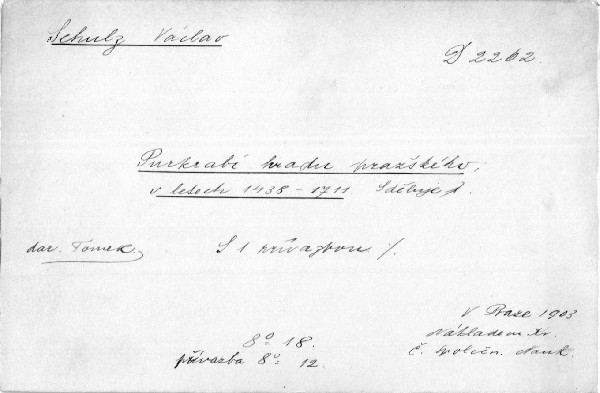 Schulz Václav
D 2262.
Purkrabí hradu pražského,
v letech 1438-1711. Sděluje
dar. Tomek.
S 1 přívazbou /.
V Praze 1903
Nákladem Kr.
č. společn. Nauk.
8° 18.
přívazba 8° 12.